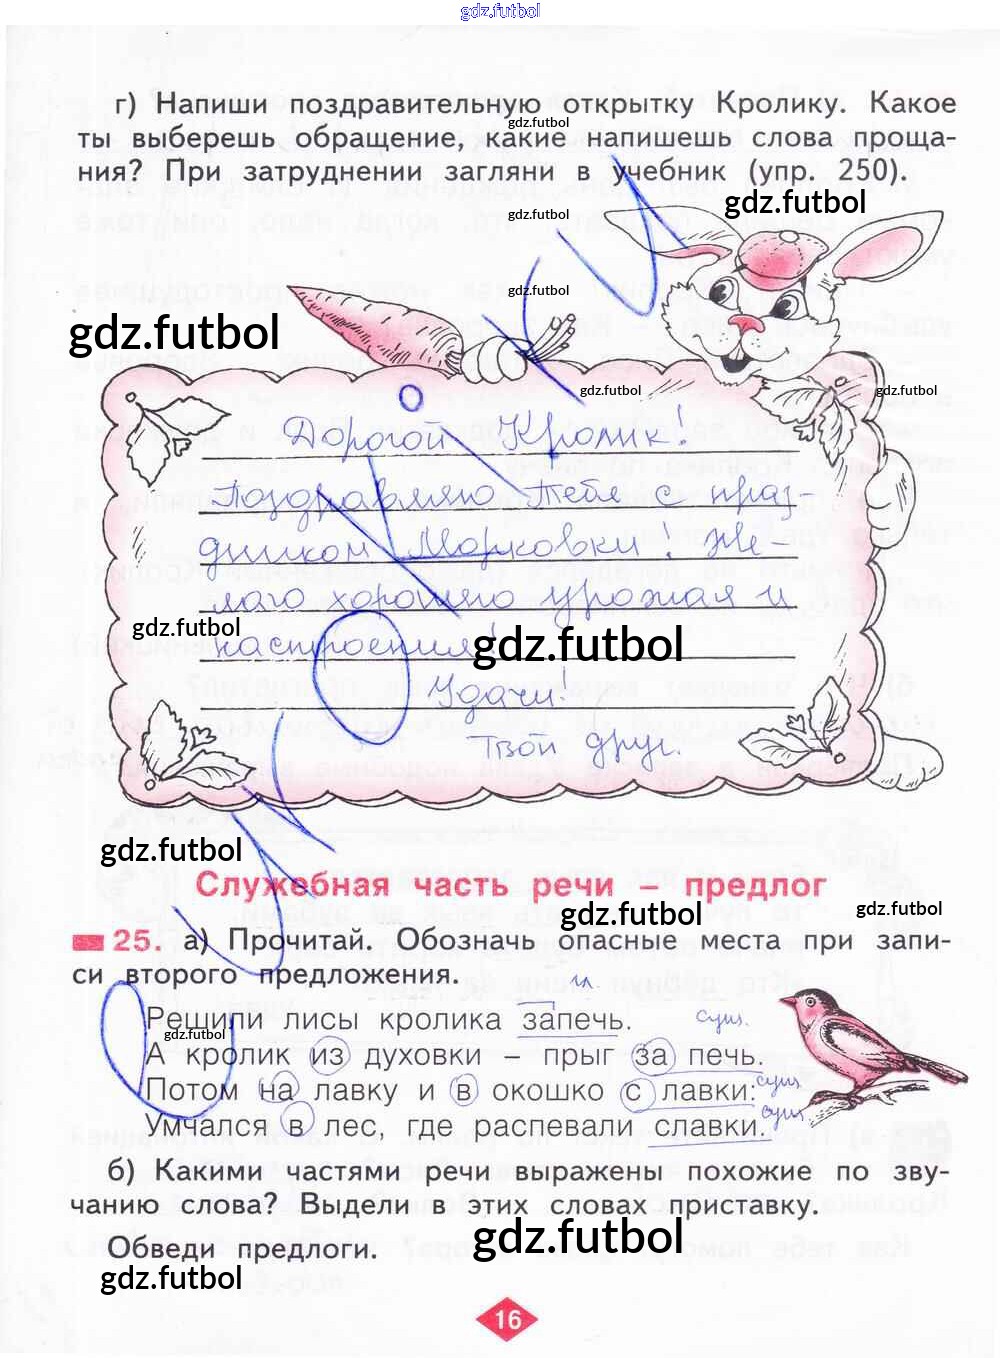 gdz.futbol
г) Напиши поздравительную открытку Кролику. Какое
gdz.futbol
ты выберешь обращение, какие напишешь слова проща-
ния? При затруднении загляни в учебник (упр. 250).
gdz.futbol
gdz.futbol
gdz.futbol
gdz.futbol
gdz.futbol
gdz.futbol
Дорогой Кролик!
Поздравляю Тебя с праз-
дником Морковки! Же
лаю хорошего урожая и
gdz.futbol
настроения!
gdz.futbol
Удачи!
Твой друг.
gdz.futbol
Служебная часть речи – предлог
gdz.futbol
gdz.futbol
25. а) Прочитай. Обозначь опасные места при запи-
си второго предложения.
гл
Решили лисы кролика запечь.
сущ.
gdz.futbol
А кролик из духовки – прыг за печь.
Потом на лавку и в окошко с лавки:
сущ
Умчался в лес, где распевали славки.
сущ.
б) Какими частями речи выражены похожие по зву-
чанию слова? Выдели в этих словах приставку.
gdz.futbol
Обведи предлоги.
gdz.futbol
16